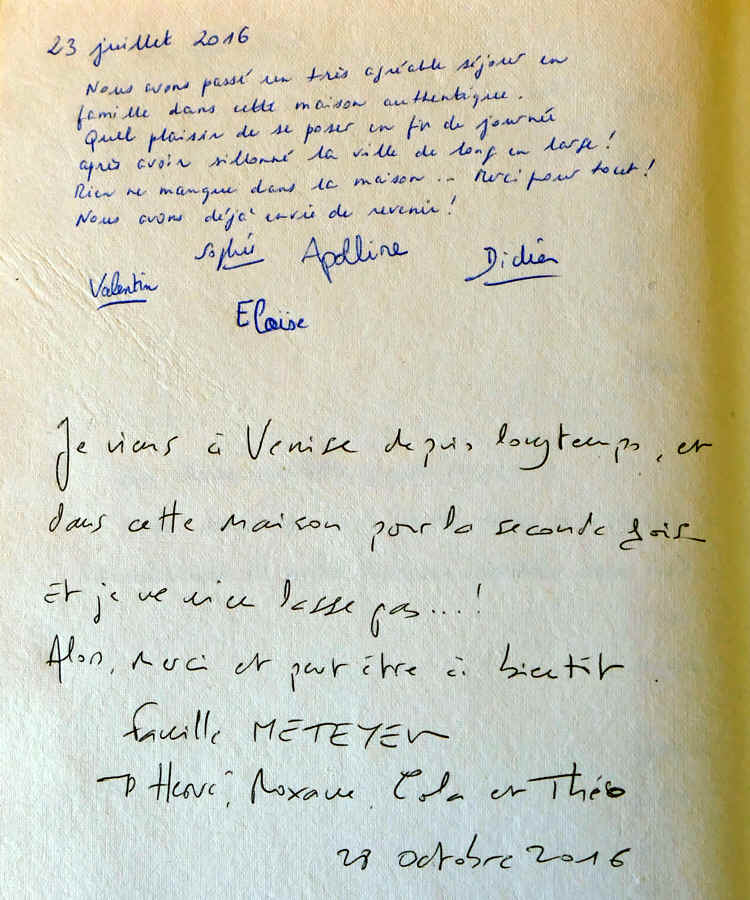 23 juillet 2016
Nous avons passé un très agréable séjour en
famille dans cette maison authentique.
Quel plaisir de se poser en fin de journée
après avoir sillonné la ville de long en large !
Rien ne manque dans la maison ... Merci pour tout !
Nous avons déjà envie de revenir !
Sophie Apolline Didier
Valentin
Eloïse
Je viens à Venise depuis longtemps, et
dans cette maison pour la seconde fois
Et je ne m'en lasse pas...!
Alors, merci et peut être à bientôt.
famille METEYER
Hervé, Roxane, Lola et Théo
28 octobre 2016